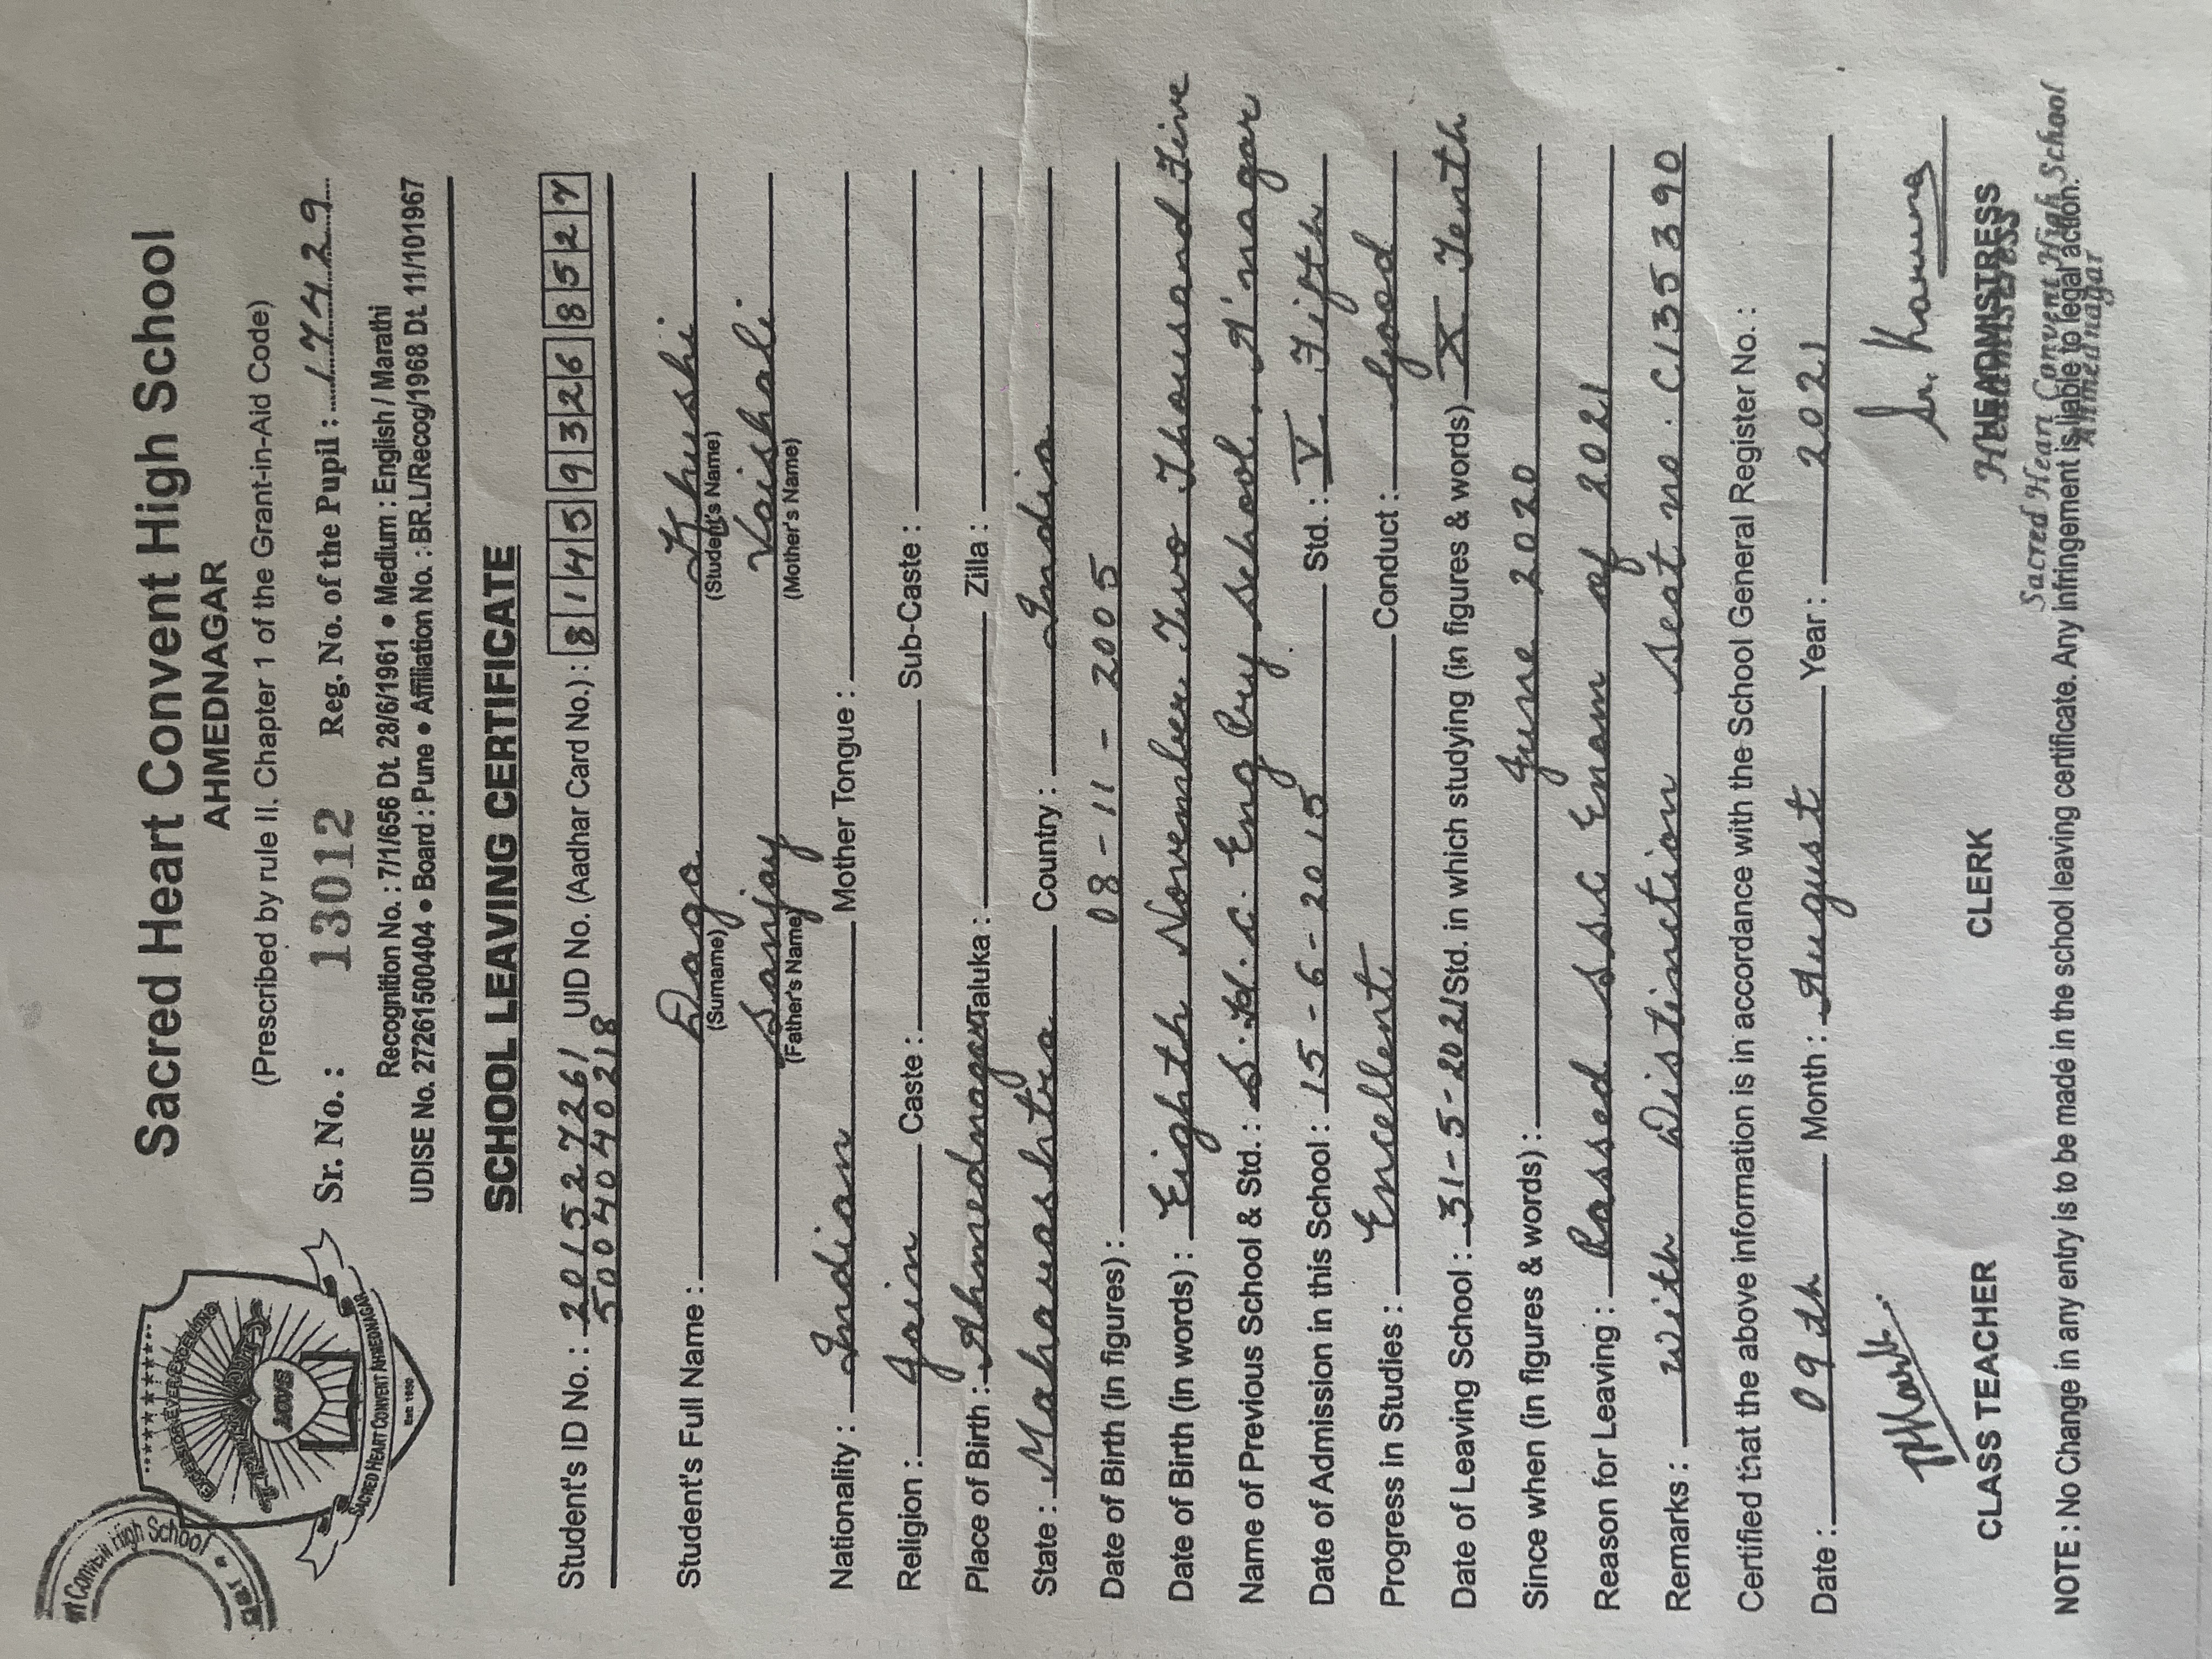 Sacred Heart Convent High School
AHMEDNAGAR
(Prescribed by rule II, Chapter 1 of the Grant-in-Aid Code)
Sr. No. : 13012 Reg. No. of the Pupil : 17429
Recognition No. : 7/1/656 Dt. 28/6/1961 • Medium : English / Marathi
UDISE No. 27261500404 • Board : Pune • Affiliation No. : BR.L/Recog/1968 Dt. 11/101967
SACRED HEART CONVENT AHMEDNAGAR
LOVE
High School
SCHOOL LEAVING CERTIFICATE
Student's ID No. : 201527261 UID No. (Aadhar Card No.) : 8145 9326 8527
5004040218
Student's Full Name : Daga Khushi
(Surname) (Student's Name)
Sanjay Vaishali
(Father's Name) (Mother's Name)
Nationality : Indian Mother Tongue :
Religion : Jain Caste : Sub-Caste :
Place of Birth : Ahmednagar Taluka : Zilla :
State : Maharashtra Country : India
Date of Birth (in figures) : 08-11-2005
Date of Birth (in words) : Eighth November Two Thousand Five
Name of Previous School & Std. : S.H.C. Eng Pry School, A'nagar
Date of Admission in this School : 15-6-2015 Std. : V. Fifth
Progress in Studies : Excellent Conduct : Good
Date of Leaving School : 31-5-2021 Std. in which studying (in figures & words) X Tenth
Since when (in figures & words) : June 2020
Reason for Leaving : Passed SSC Exam of 2021
Remarks : with Distinction Seat no. C135390
Certified that the above information is in accordance with the School General Register No. :
Date : 09th Month : August Year : 2021
CLASS TEACHER CLERK HEADMISTRESS
Headmistress
Sacred Heart Convent High School
Ahmednagar
NOTE : No Change in any entry is to be made in the school leaving certificate. Any infringement is liable to legal action.